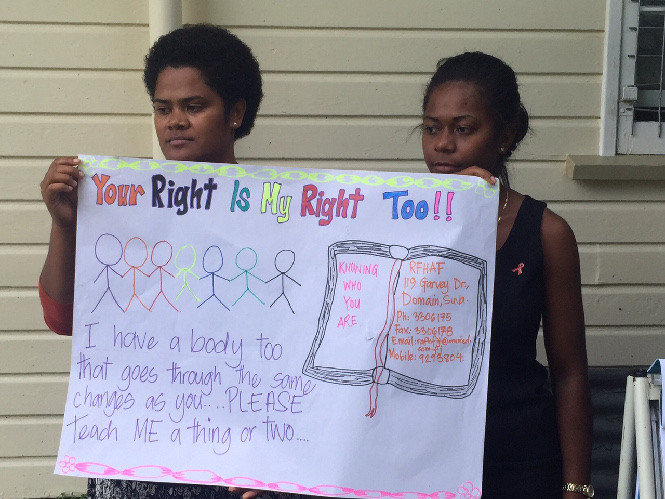 Your Right Is My Right Too!!
KNOWING
WHO
YOU
ARE
RFHAF
119 Garvey Dr,
Domain, Suva
Ph: 3306175
Fax: 3306178
Email:
Mobile: 9293804
I have a body too
that goes through the same
changes as you....PLEASE
Teach ME a thing or two....